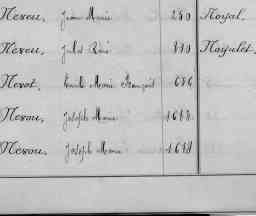 Nevou, Jean Marie 280 Noyal.
Nevou, Jules René 810 Noyulet.
Nevot, Emile Marie François 686
Nevou, Joseph Marie
Nevou, Joseph Marie